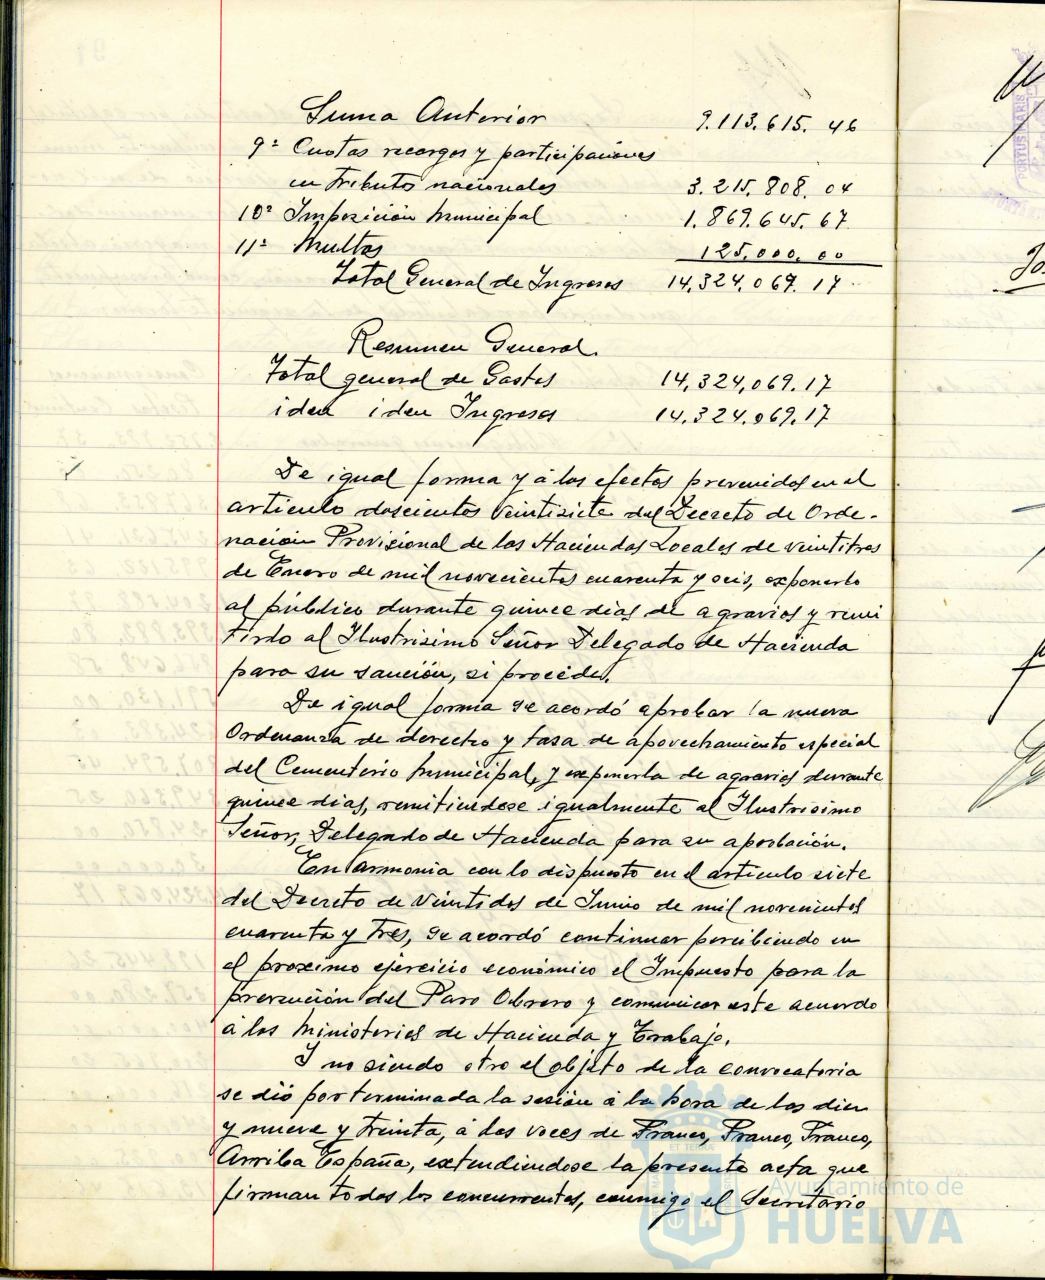 Suma Anterior 9.113.615. 46
9º Cuotas recargos y participaciones
en tributos nacionales 3.215.808. 04
10º Imposición Municipal 1.869.645. 67
11º Multas 125.000. 00
Total General de Ingresos 14.324.069. 17
Resumen General.
Total general de Gastos 14.324.069.17
iden iden Ingresos 14.324.069.17
De igual forma y á los efectos prevenidos en el
articulo doscientos veintisiete del Decreto de Orde-
nación Provisional de las Haciendas Locales de veintitres
de Enero de mil novecientos cuarenta y seis, exponerlo
al público durante quince dias de agravios y remi
tirlo al Ilustrisimo Señor Delegado de Hacienda
para su sanción, si procede.
De igual forma se acordó aprobar la nueva
Ordenanza de derecho y tasa de apovechamiento especial
del Cementerio Municipal, y exponerla de agravios durante
quince dias, remitiendose igualmente al Ilustrisimo
Señor, Delegado de Hacienda para su aprobación.
En armonia con lo dispuesto en el articulo siete
del Decreto de veintidos de Junio de mil novecientos
cuarenta y tres, se acordó continuar percibiendo en
el proximo ejercicio económico el Impuesto para la
prevención del Paro Obrero y comunicar este acuerdo
á los Ministerios de Hacienda y Trabajo.
Y no siendo otro el objeto de la convocatoria
se dió por terminada la sesión á la hora de las diez
y nueve y treinta, á las voces de Franco, Franco, Franco,
Arriba España, extendiendose la presente acta que
firman todos los concurrentes, conmigo el Secretario
Ayuntamiento de
HUELVA